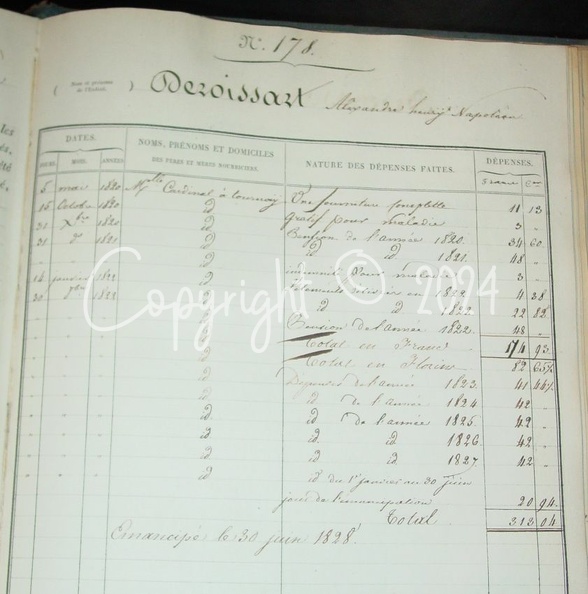 Nº. 178.
( Nom et prénoms de l'Enfant. ) Deroissart Alexandre henry Napoléon
DATES. NOMS, PRÉNOMS ET DOMICILES DES PÈRES ET MÈRES NOURRICIERS. NATURE DES DÉPENSES FAITES. DÉPENSES.
JOURS. MOIS. ANNÉES
5 mai 1820 Cardinal à tournay Une fourniture complette 11 13
15 Octobre 1820 id pour maladie 3 -
31 Xbre 1820 id Pension de l'année 1820. 34 60
31 do 1821 id id id 1821. 48 -
14 janvier 1822 id pour 3 -
30 1822 id en 1822 4 38
id id id 1822 22 82
id Pension de l'année 1822. 48 -
id Total en Francs 174 93
id Total en Florins 82 65½
id Dépenses de l'année 1823. 41 44½
id id de l'année 1824 42 -
id id de l'année 1825 42 -
id id id 1826 42 -
id id id 1827 42 -
id id du 1er janvier au 30 Juin
jour de l'émancipation 20 94
Total 313 04
Emancipé le 30 juin 1828
Copyright © 2024